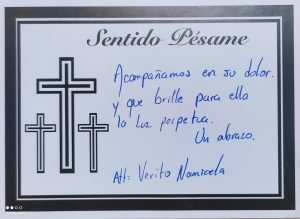 Sentido Pésame
Acompañamos en su dolor.
y que brille para ella
la luz perpetua.
Un abrazo.
Att: Verito Namicela